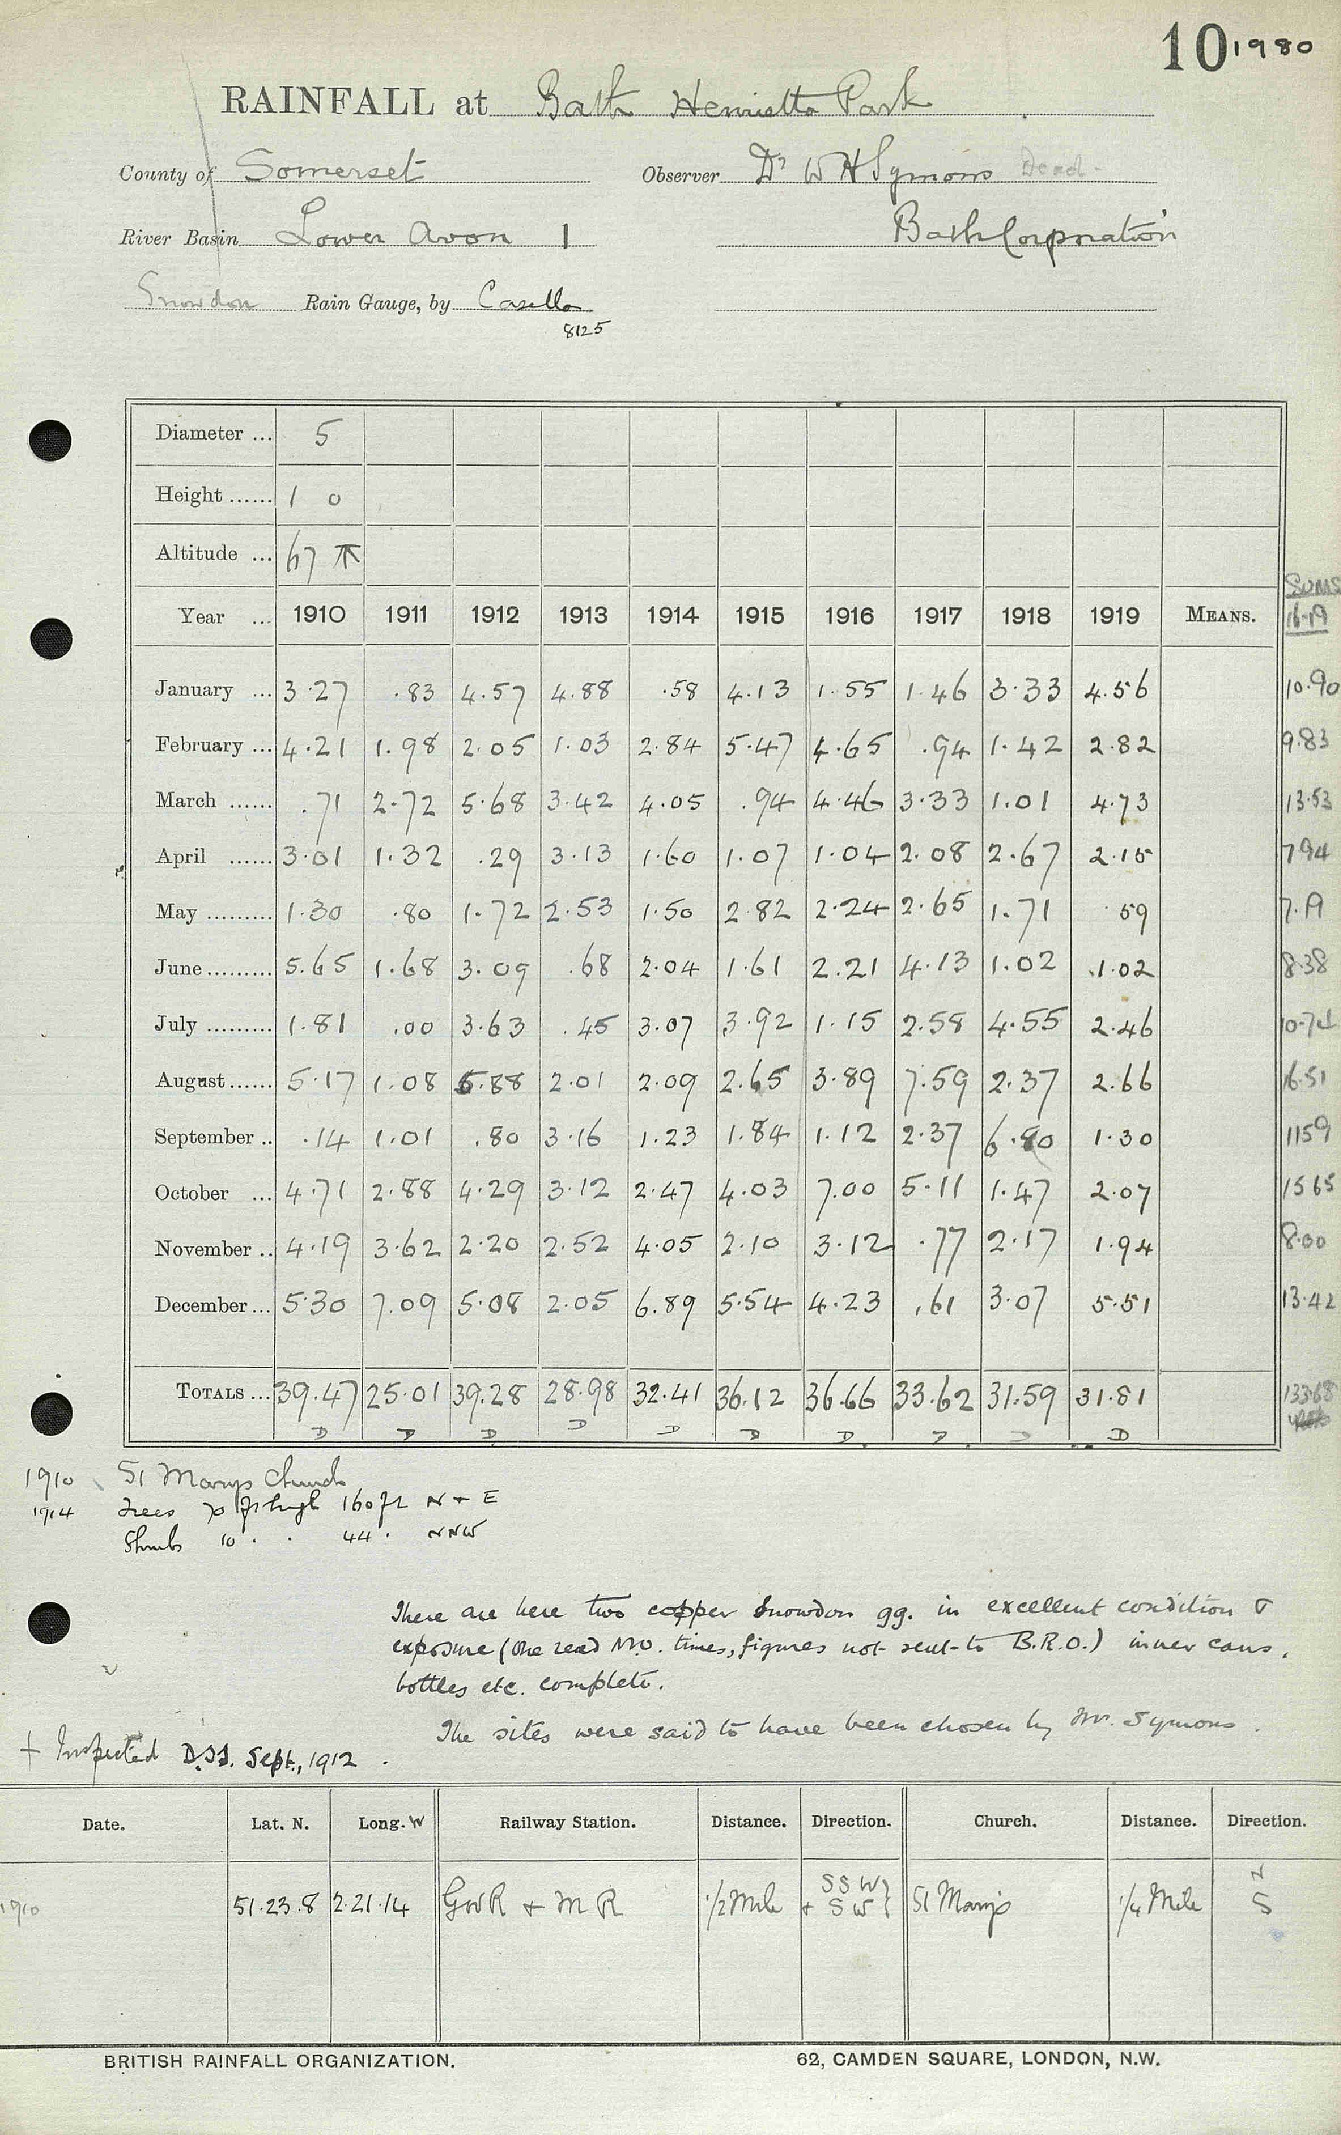 10 1980
RAINFALL at Bath Henrietta Park
County of Somerset Observer Dr W H Symons Dead.
River Basin Lower Avon 1 Bath Corporation
Snowdon Rain Gauge, by Casella
8125
Diameter ... 5
Height ...... 1 0
Altitude ... 67
SUMS
Year ... 1910 1911 1912 1913 1914 1915 1916 1917 1918 1919 MEANS. 16-19
January ... 3.27 .83 4.57 4.88 .58 4.13 1.55 1.46 3.33 4.56 10.90
February ... 4.21 1.98 2.05 1.03 2.84 5.47 4.65 .94 1.42 2.82 9.83
March ...... .71 2.72 5.68 3.42 4.05 .94 4.46 3.33 1.01 4.73 13.53
April ...... 3.01 1.32 .29 3.13 1.60 1.07 1.04 2.08 2.67 2.15 7.94
May ......... 1.30 .80 1.72 2.53 1.50 2.82 2.24 2.65 1.71 .59 7.19
June ......... 5.65 1.68 3.09 .68 2.04 1.61 2.21 4.13 1.02 1.02 8.38
July ......... 1.81 .00 3.63 .45 3.07 3.92 1.15 2.58 4.55 2.46 10.74
August ...... 5.17 1.08 5.88 2.01 2.09 2.65 3.89 7.59 2.37 2.66 16.51
September .. .14 1.01 .80 3.16 1.23 1.84 1.12 2.37 6.80 1.30 11 59
October ... 4.71 2.88 4.29 3.12 2.47 4.03 7.00 5.11 1.47 2.07 15 65
November .. 4.19 3.62 2.20 2.52 4.05 2.10 3.12 .77 2.17 1.94 8.00
December ... 5.30 7.09 5.08 2.05 6.89 5.54 4.23 .61 3.07 5.51 13.42
TOTALS ... 39.47 25.01 39.28 28.98 32.41 36.12 36.66 33.62 31.59 31.81 133.68
D D D D D D D D D D
1910 St Marys Church
1914 Trees 70 ft high 160 ft N + E
Shrubs 10 " " 44 " NNW
There are here two copper Snowdon gg. in excellent condition &
exposure (one read M.O. times, figures not sent to B.R.O.) inner cans,
bottles etc. complete.
The sites were said to have been chosen by Mr. Symons.
+ Inspected D.S.S. Sept., 1912.
Date. Lat. N. Long. W Railway Station. Distance. Direction. Church. Distance. Direction.
1910 51.23.8 2.21.14 GWR + M R 1/2 Mile SSW + SW St Marys 1/4 Mile N S
BRITISH RAINFALL ORGANIZATION. 62, CAMDEN SQUARE, LONDON, N.W.